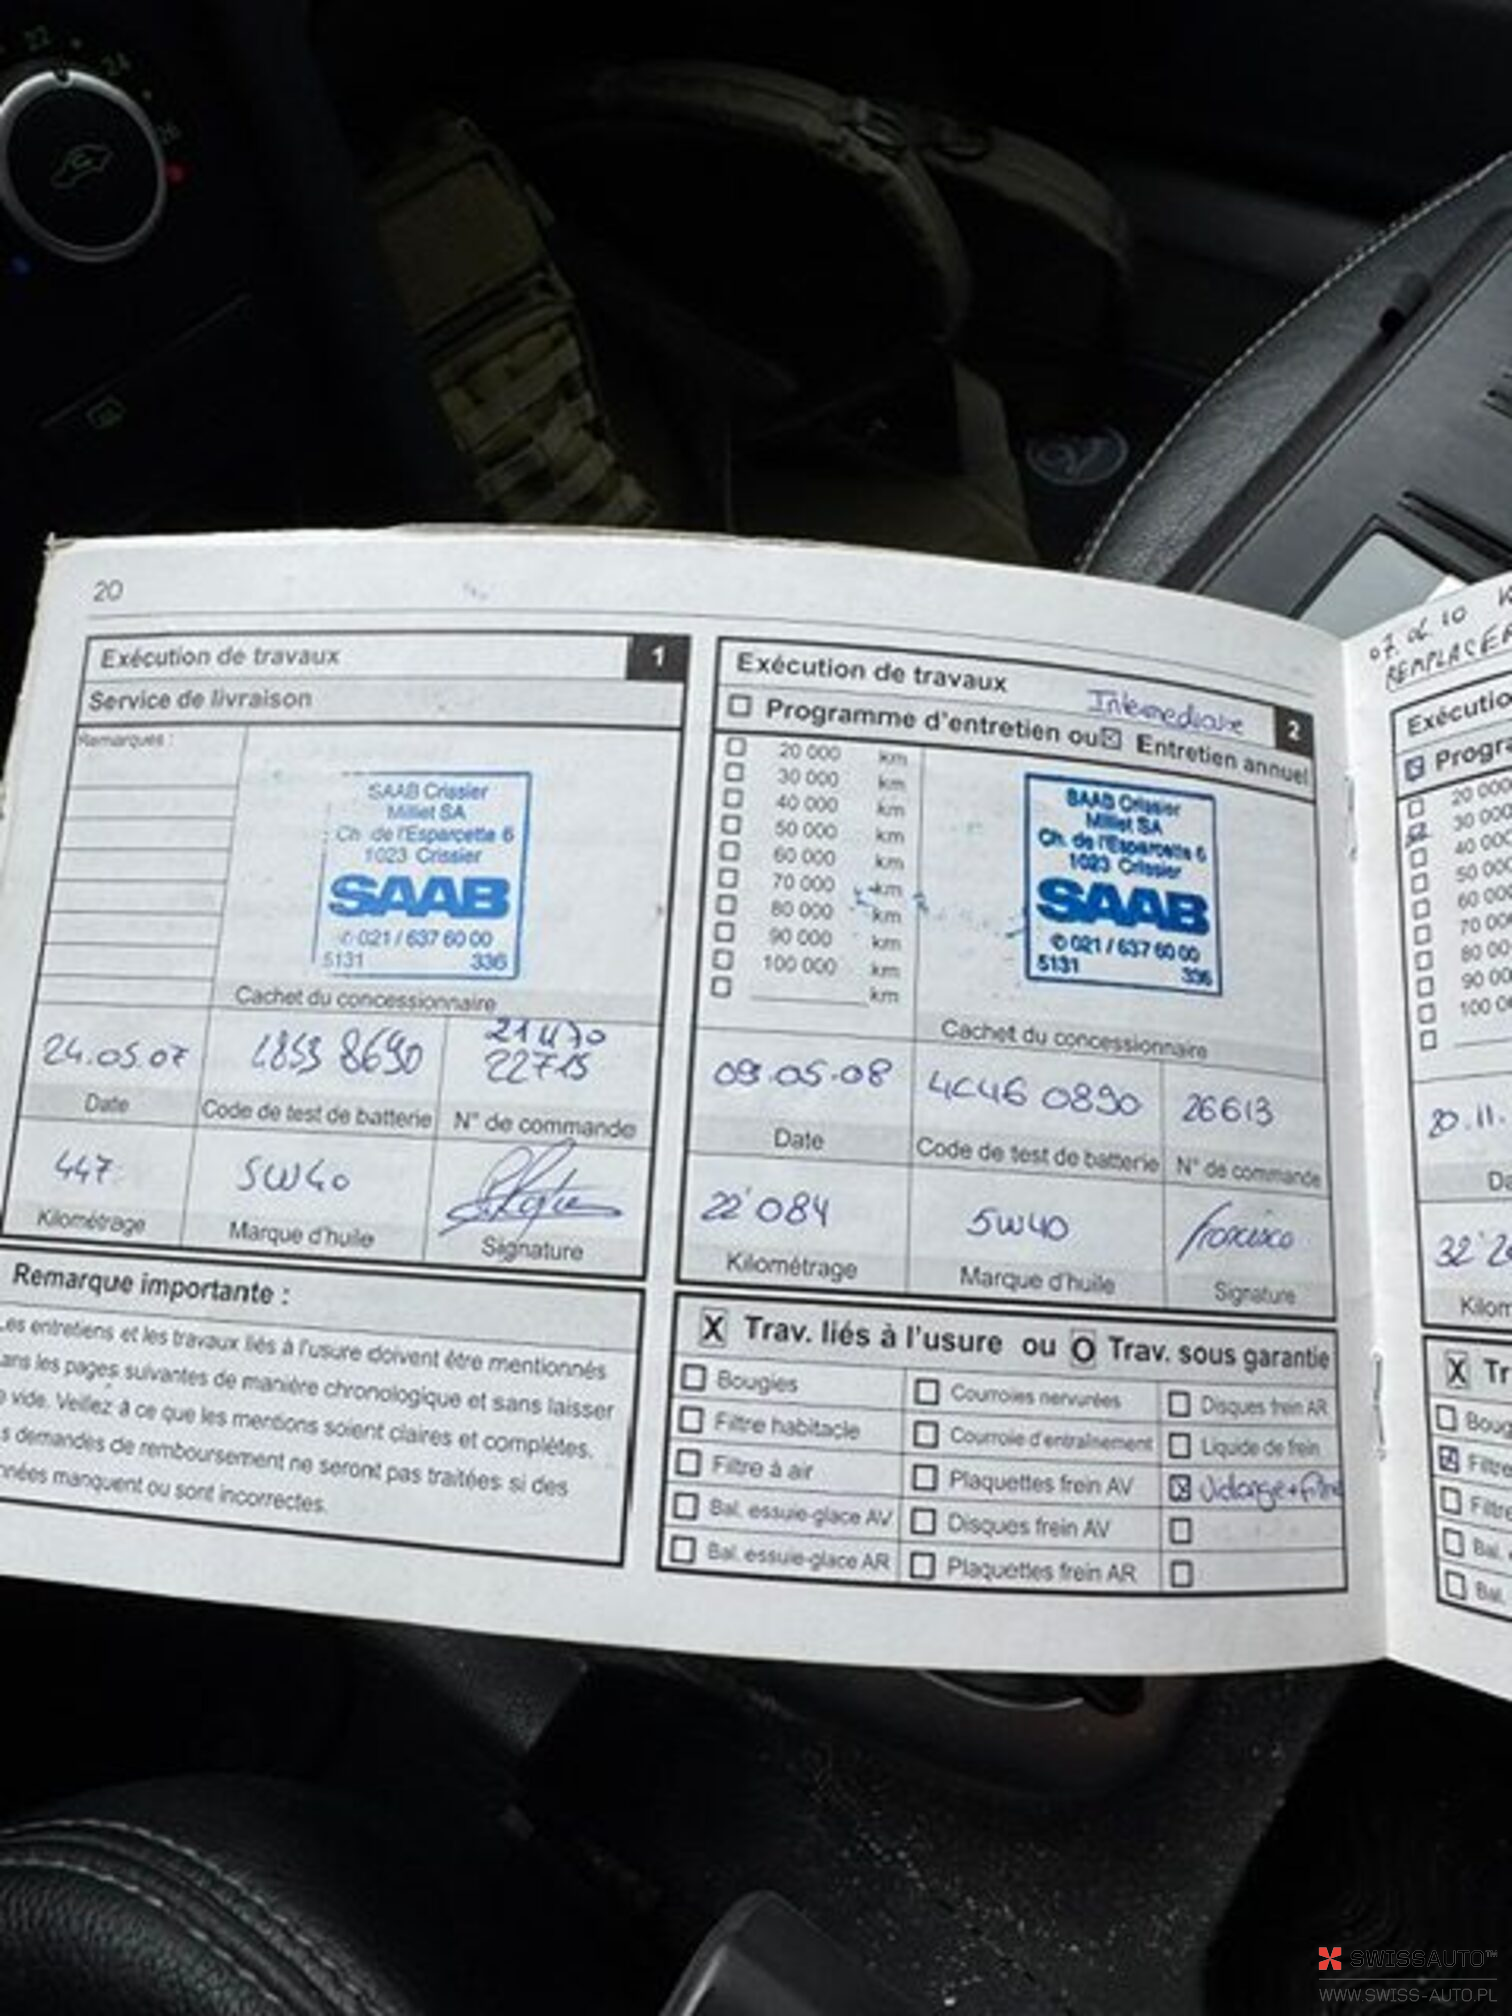 22
24
26
20
Exécution de travaux 1
Service de livraison
Remarques :
SAAB Crissier
Milliet SA
Ch. de l'Esparcette 6
1023 Crissier
SAAB
✆ 021 / 637 60 00
5131 336
Cachet du concessionnaire
21470
24.05.07 2853 8690 22715
Date Code de test de batterie N° de commande
447 5W40
Kilométrage Marque d'huile Signature
Remarque importante :
Les entretiens et les travaux liés à l'usure doivent être mentionnés
ans les pages suivantes de manière chronologique et sans laisser
e vide. Veillez à ce que les mentions soient claires et complètes.
s demandes de remboursement ne seront pas traitées si des
nnées manquent ou sont incorrectes.
Exécution de travaux Intermediaire 2
Programme d'entretien ou Entretien annuel
20 000 km
30 000 km
40 000 km
50 000 km
60 000 km
70 000 km
80 000 km
90 000 km
100 000 km
km
SAAB Crissier
Milliet SA
Ch. de l'Esparcette 6
1023 Crissier
SAAB
✆ 021 / 637 60 00
5131 336
Cachet du concessionnaire
09.05.08 4C46 0890 26613
Date Code de test de batterie N° de commande
22'084 5W40 Francisco
Kilométrage Marque d'huile Signature
X Trav. liés à l'usure ou O Trav. sous garantie
Bougies Courroies nervurées Disques frein AR
Filtre habitacle Courroie d'entraînement Liquide de frein
Filtre à air Plaquettes frein AV Vidange+filtre
Bal. essuie-glace AV Disques frein AV
Bal. essuie-glace AR Plaquettes frein AR
07.01.10
REMPLACE
Exécutio
Progra
20 000
30 000
40 000
50 00
60 00
70 00
80 00
90 00
100 0
20.11.
Da
32'2
Kilom
X Tr
Boug
Filtre
Filtre
Bal.
Bal.
SWISSAUTO™
WWW.SWISS-AUTO.PL